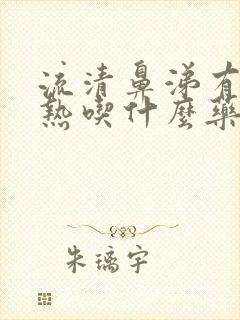 流清鼻涕有
熱喫什麼藥
朱璃宇